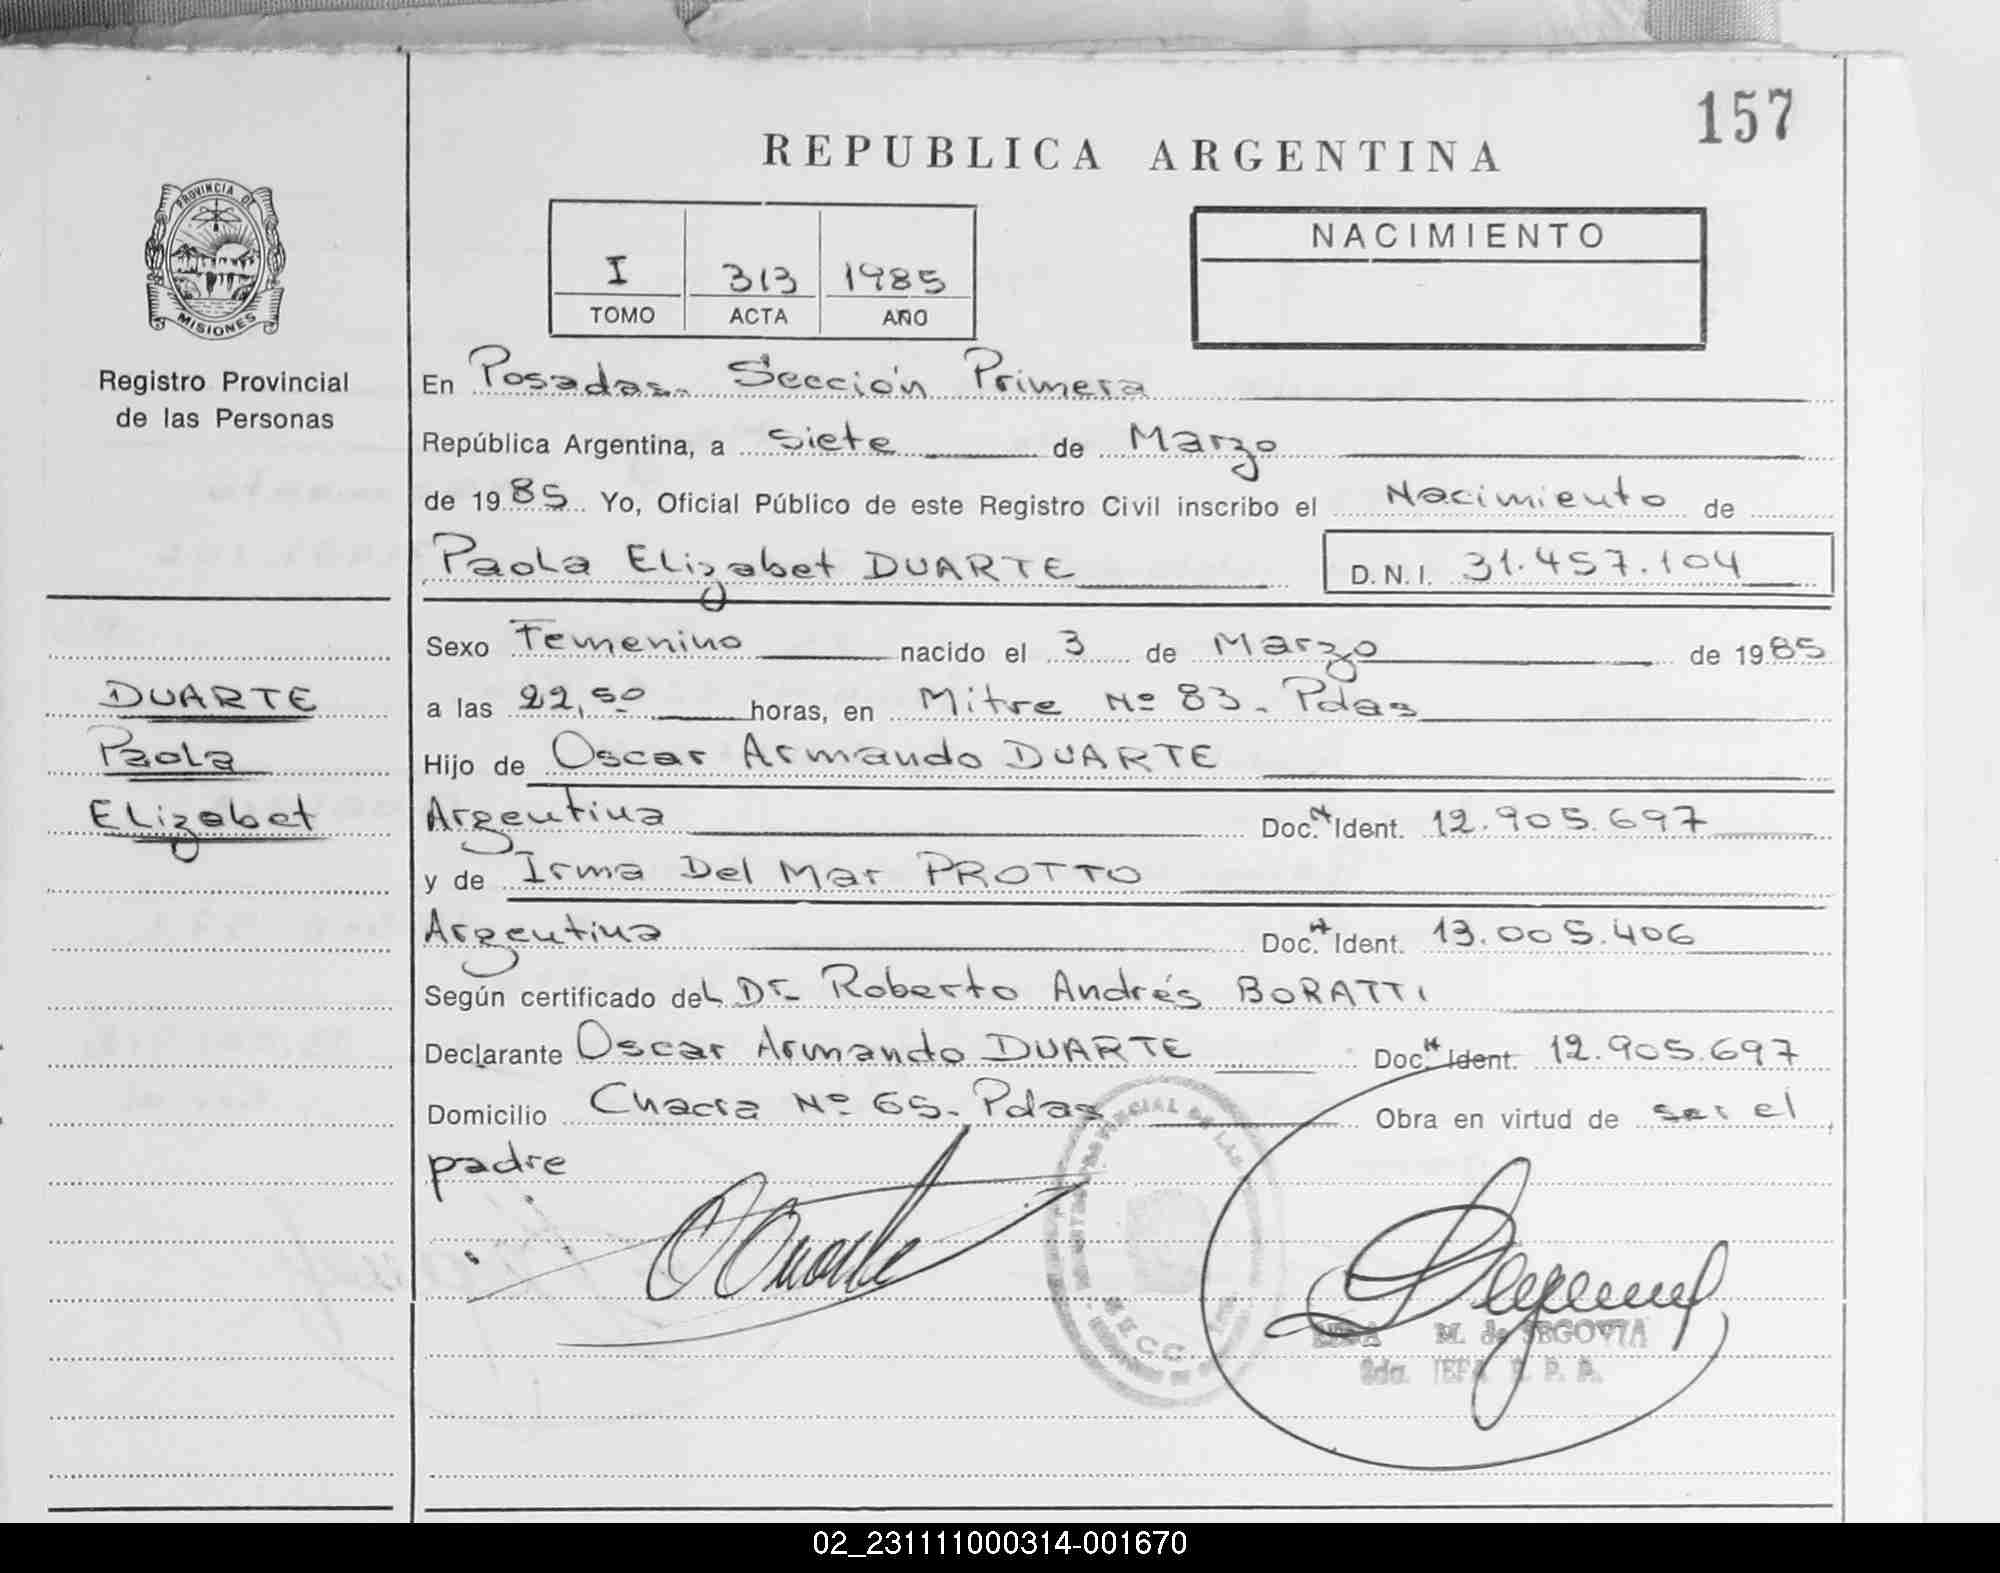 157
REPUBLICA ARGENTINA
PROVINCIA DE
MISIONES
Registro Provincial
de las Personas
I 313 1985
TOMO ACTA AÑO
NACIMIENTO
En Posadas. Sección Primera
República Argentina, a siete de Marzo
de 1985 Yo, Oficial Público de este Registro Civil inscribo el Nacimiento de
Paola Elizabet DUARTE D.N.I. 31.457.104
Sexo Femenino nacido el 3 de Marzo de 1985
DUARTE
Paola
Elizabet
a las 22,50 horas, en Mitre Nº 83. Pdas
Hijo de Oscar Armando DUARTE
Argentina Doc. Ident. 12.905.697
y de Irma Del Mar PROTTO
Argentina Doc. Ident. 13.005.406
Según certificado del Dr. Roberto Andrés BORATTI
Declarante Oscar Armando DUARTE Doc. Ident. 12.905.697
Domicilio Chacra Nº 65. Pdas Obra en virtud de ser el
padre
ODuarte
M. de SEGOVIA
2da. JEFA R. P. P.
02_231111000314-001670